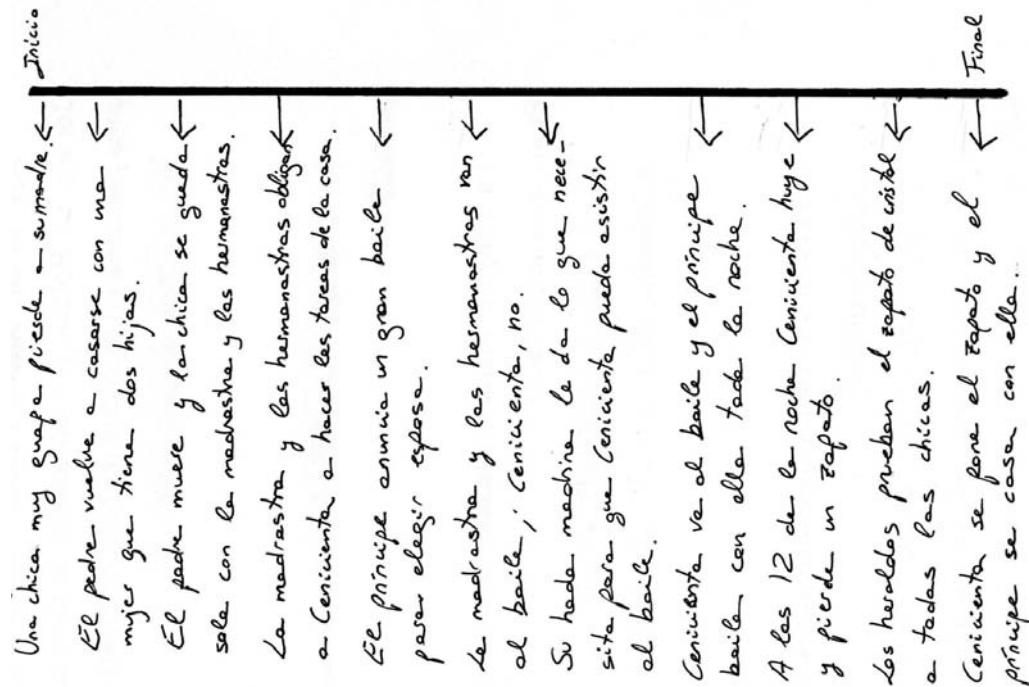 Inicio
Una chica muy guapa pierde a su madre.
El padre vuelve a casarse con una
mujer que tiene dos hijas.
El padre muere y la chica se queda
sola con la madrastra y las hermanastras.
La madrastra y las hermanastras obligan
a Cenicienta a hacer las tareas de la casa.
El príncipe anuncia un gran baile
para elegir esposa.
La madrastra y las hermanastras van
al baile; Cenicienta, no.
Su hada madrina le da lo que nece-
sita para que Cenicienta pueda asistir
al baile.
Cenicienta va al baile y el príncipe
baila con ella toda la noche.
A las 12 de la noche Cenicienta huye
y pierde un zapato.
Los heraldos prueban el zapato de cristal
a todas las chicas.
Cenicienta se pone el zapato y el
príncipe se casa con ella...
Final